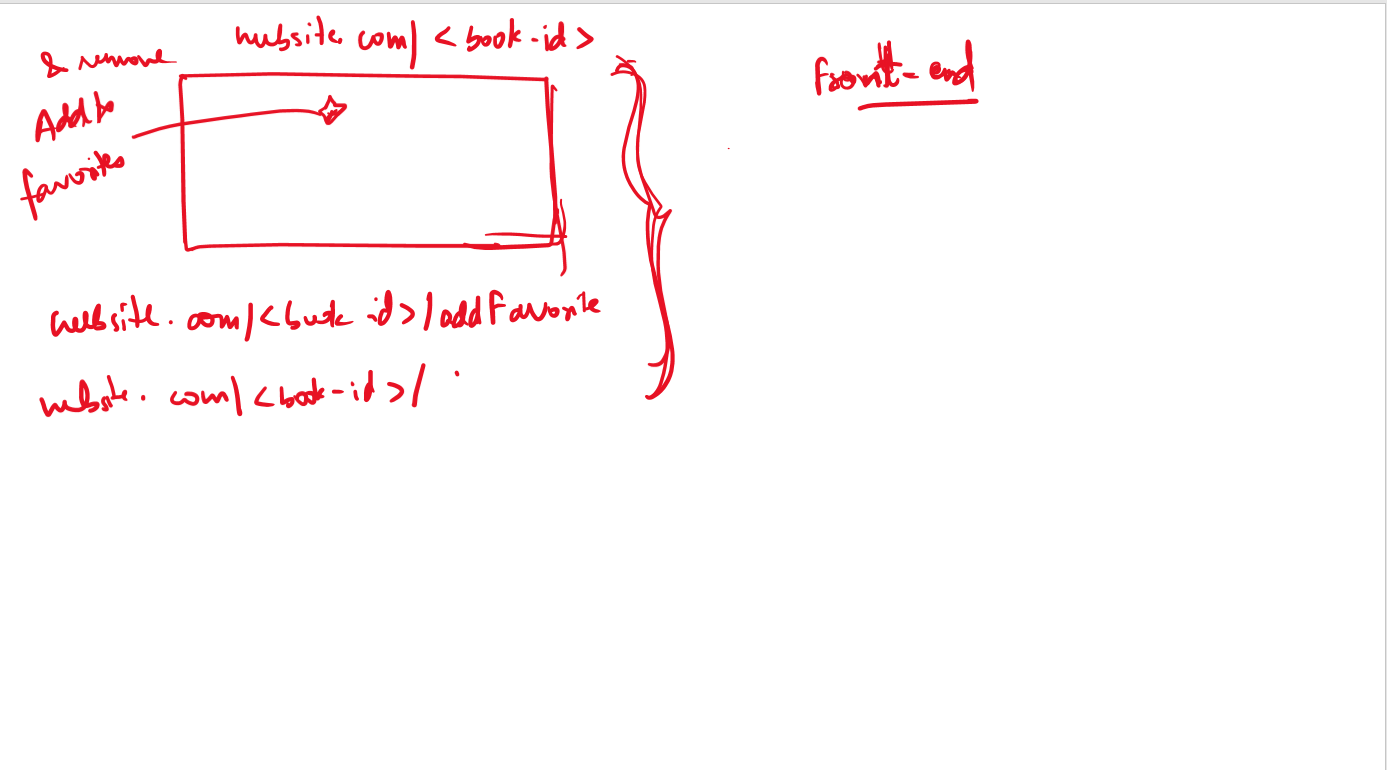 website.com/<book-id>
& remove
Add to
favorites
front-end
website.com/<book id>/addFavorite
website.com/<book-id>/